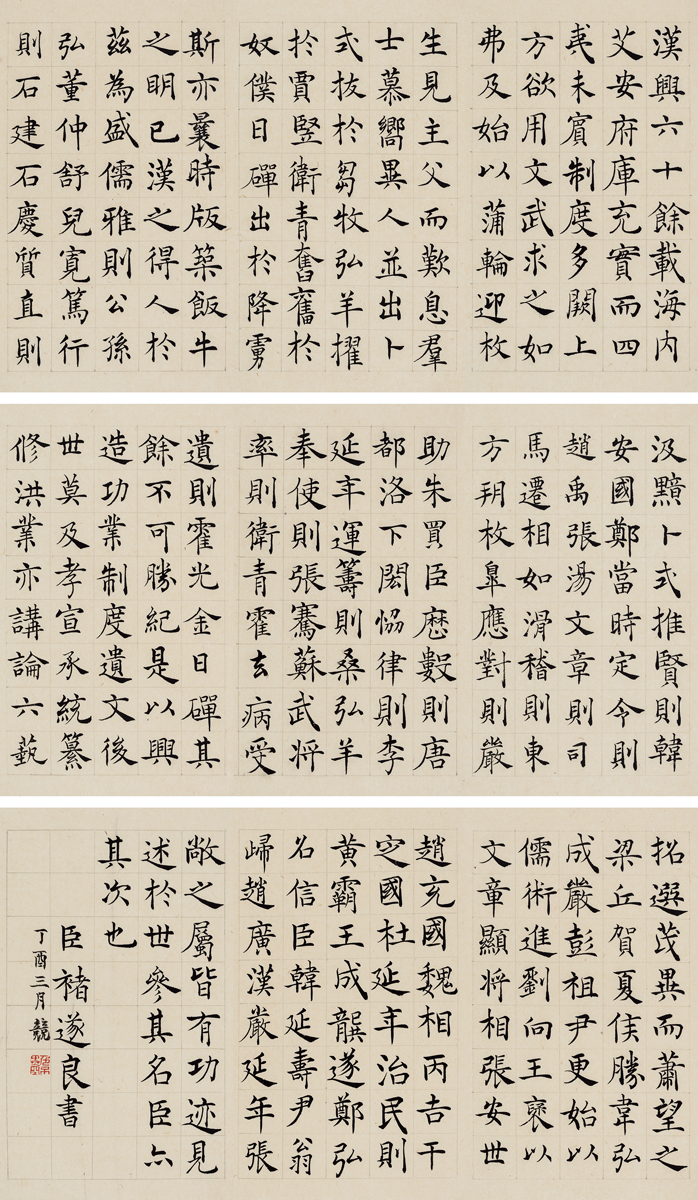 漢興六十餘載海内
艾安府庫充實而四
夷未賓制度多闕上
方欲用文武求之如
弗及始以蒲輪迎枚
生見主父而歎息羣
士慕嚮異人並出卜
式拔於芻牧弘羊擢
於賈豎衛青奮舊於
奴僕日磾出於降虜
斯亦曩時版築飯牛
之明已漢之得人於
茲為盛儒雅則公孫
弘董仲舒兒寬篤行
則石建石慶質直則
汲黯卜式推賢則韓
安國鄭當時定令則
趙禹張湯文章則司
馬遷相如滑稽則東
方朔枚皐應對則嚴
助朱買臣歷數則唐
都洛下閎恊律則李
延年運籌則桑弘羊
奉使則張騫蘇武將
率則衛青霍去病受
遺則霍光金日磾其
餘不可勝紀是以興
造功業制度遺文後
世莫及孝宣承統纂
修洪業亦講論六藝
招選茂異而蕭望之
梁丘賀夏侯勝韋弘
成嚴彭祖尹更始以
儒術進劉向王褒以
文章顯將相張安世
趙充國魏相丙吉于
定國杜延年治民則
黃霸王成龔遂鄭弘
名信臣韓延壽尹翁
歸趙廣漢嚴延年張
敞之屬皆有功迹見
述於世參其名臣亦
其次也
臣褚遂良書
丁酉三月競